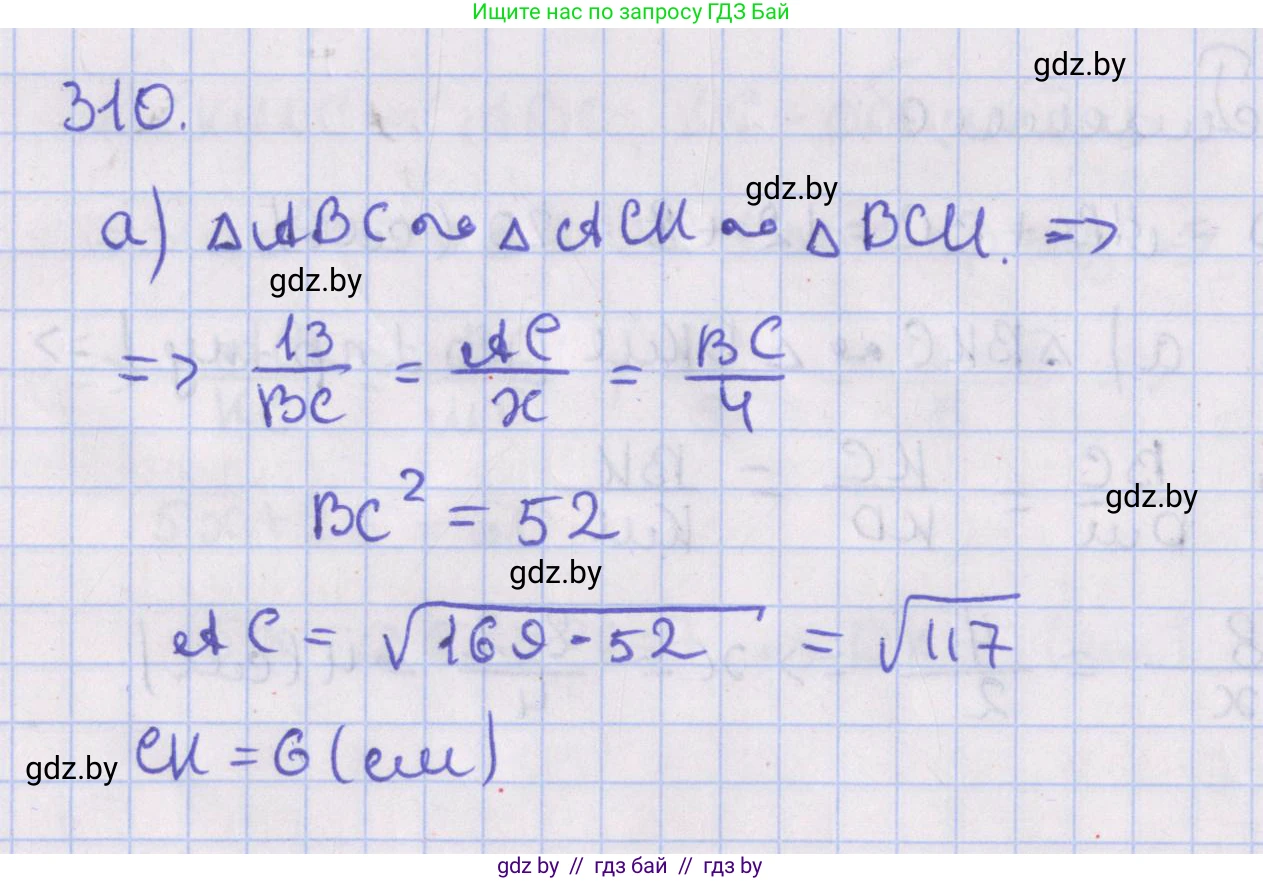 Ищите нас по запросу ГДЗ Бай
gdz.by
310.
gdz.by
а) △ABC ∾ △ACH ∾ △BCH. =>
gdz.by
=> 13/BC = AC/x = BC/4
BC² = 52
gdz.by
gdz.by
AC = √169-52 = √117
CH = 6 (см)
gdz.by
gdz.by // гдз бай // гдз by